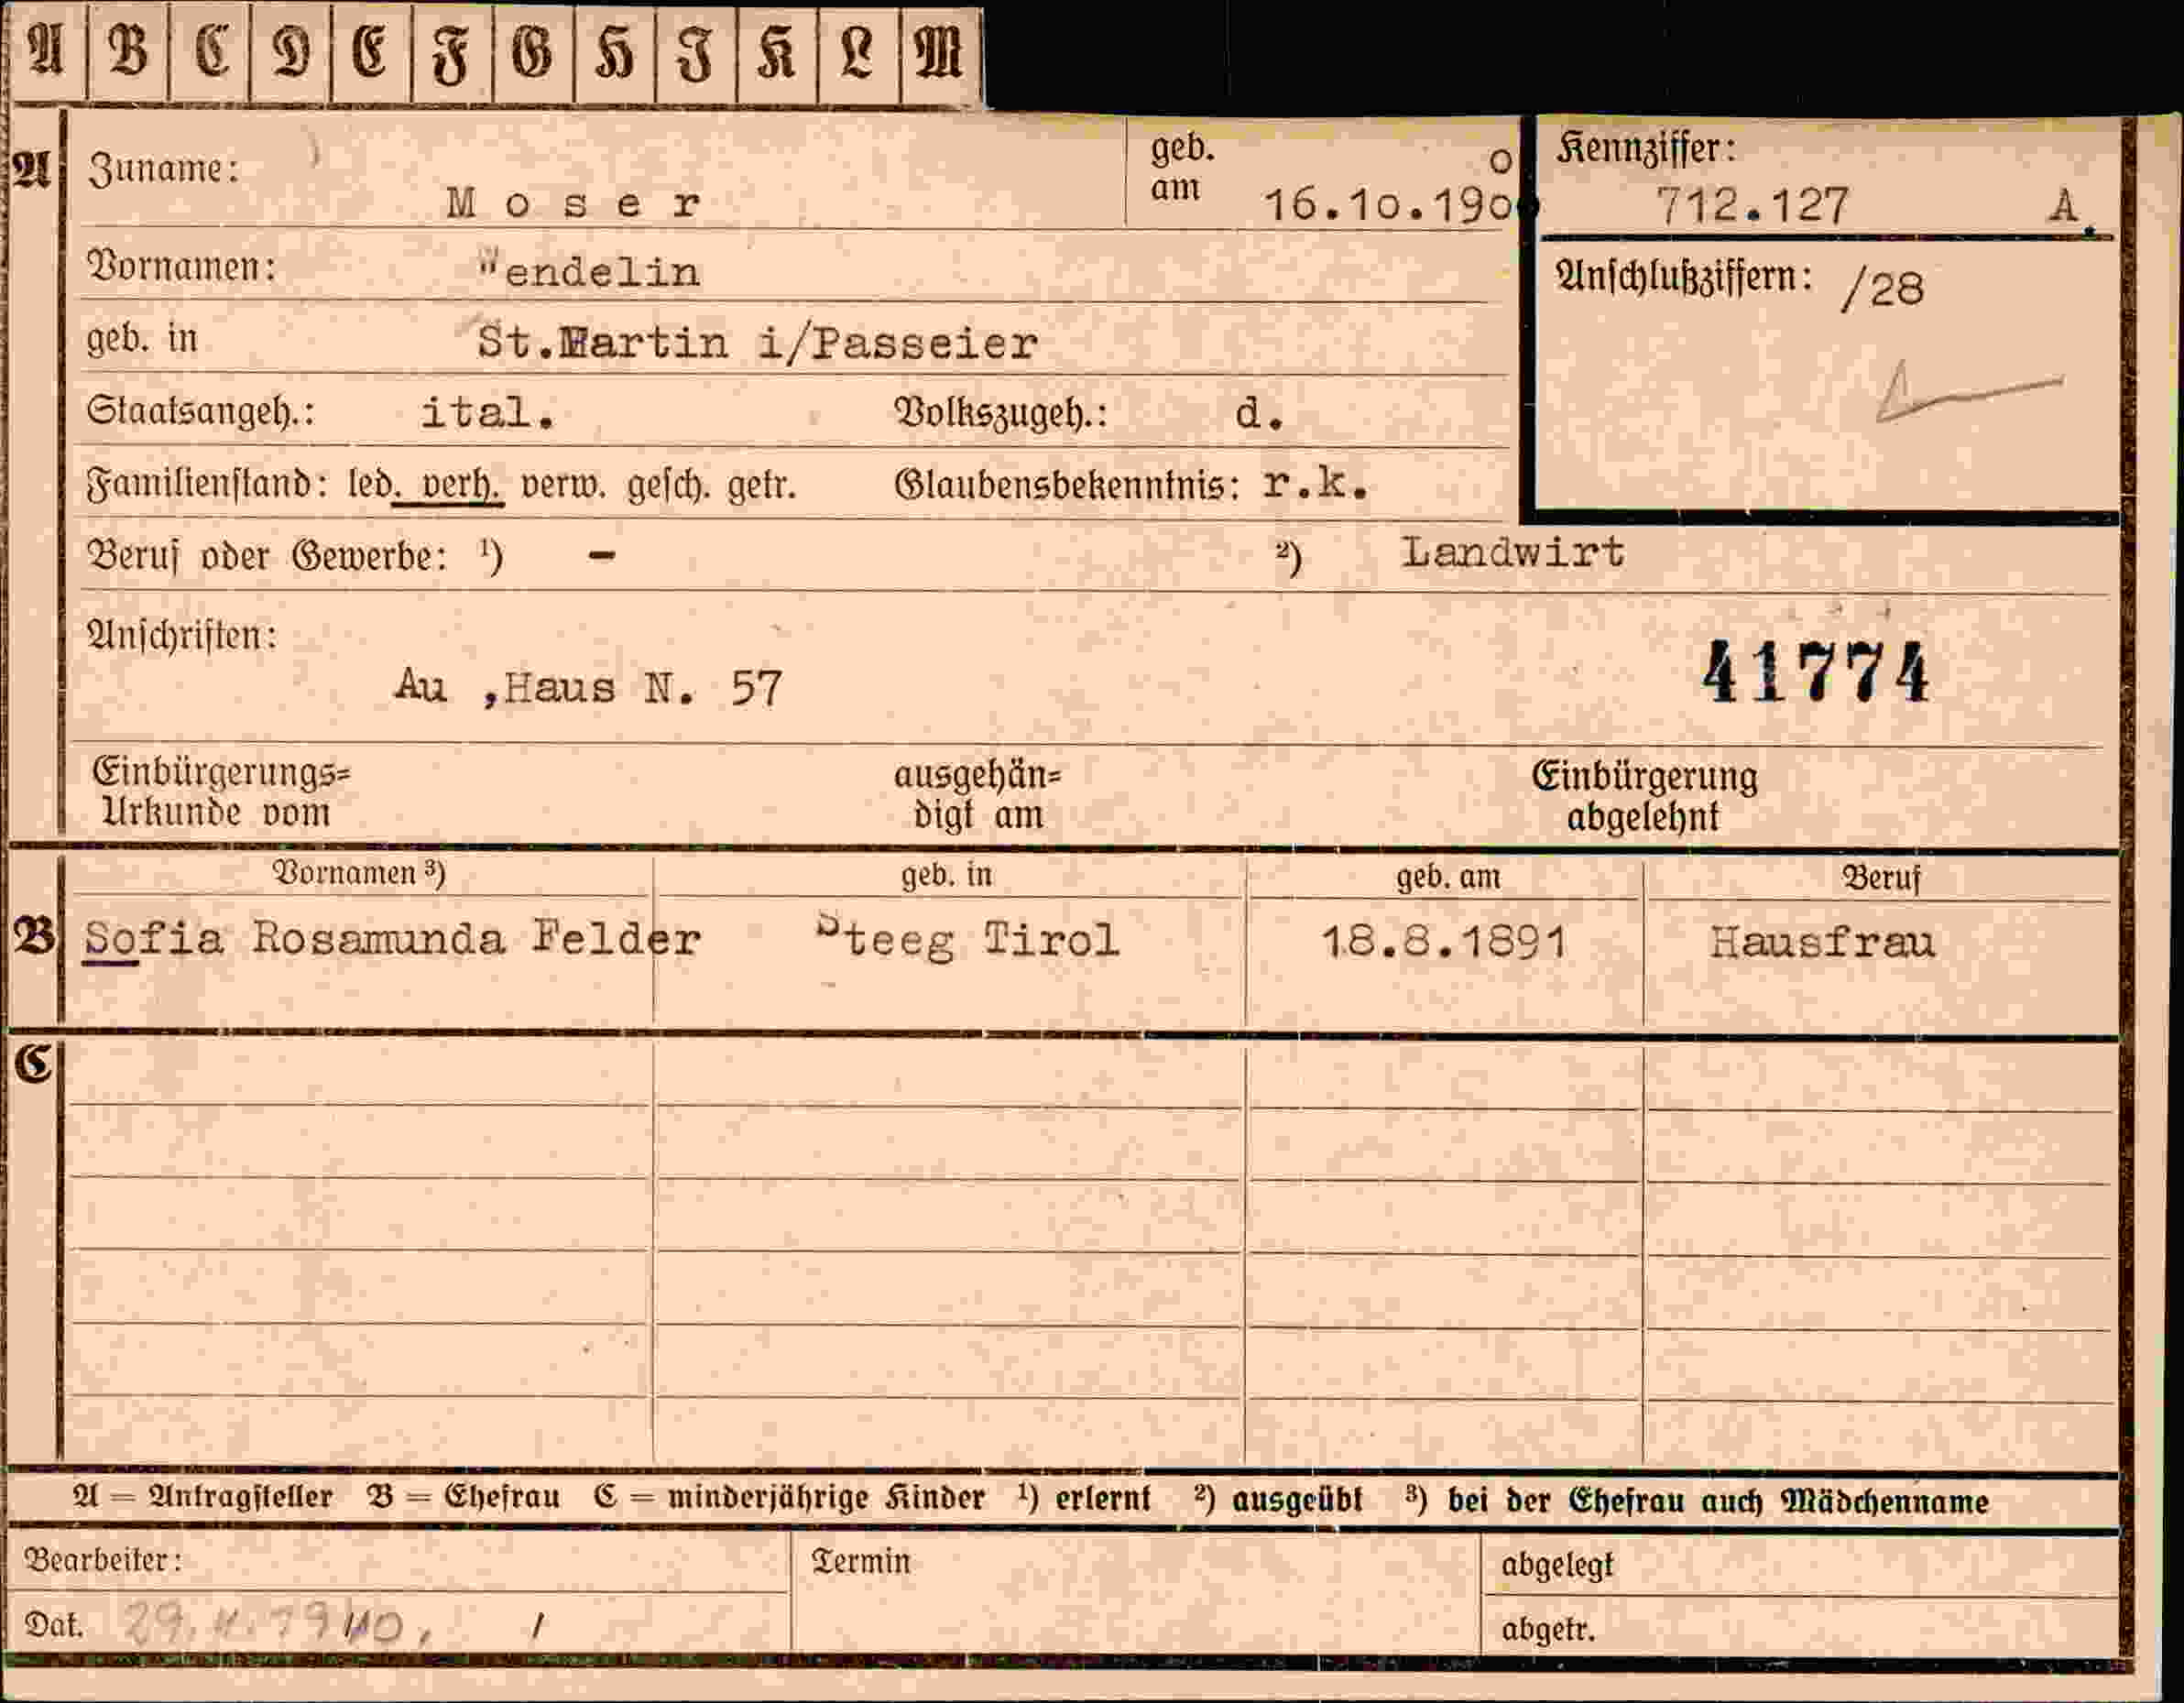 A B C D E F G H I K L M
A Zuname: M o s e r geb. am 16.10.190 o
Kennziffer: 712.127 A.
Vornamen: "endelin
Anschlußziffern: /28
geb. in St.Martin i/Passeier
Staatsangeh.: ital. Volkszugeh.: d.
Familienstand: led. verh. verw. gesch. getr. Glaubensbekenntnis: r.k.
Beruf oder Gewerbe: ¹) - ²) Landwirt
Anschriften:
41774
Au ,Haus N. 57
Einbürgerungs= ausgehän= Einbürgerung
Urkunde vom digt am abgelehnt
Vornamen ³) geb. in geb. am Beruf
B Sofia Rosamunda Felder Steeg Tirol 18.8.1891 Hausfrau
C
A = Antragsteller B = Ehefrau C = minderjährige Kinder ¹) erlernt ²) ausgeübt ³) bei der Ehefrau auch Mädchenname
Bearbeiter: Termin abgelegt
Dat. abgetr.